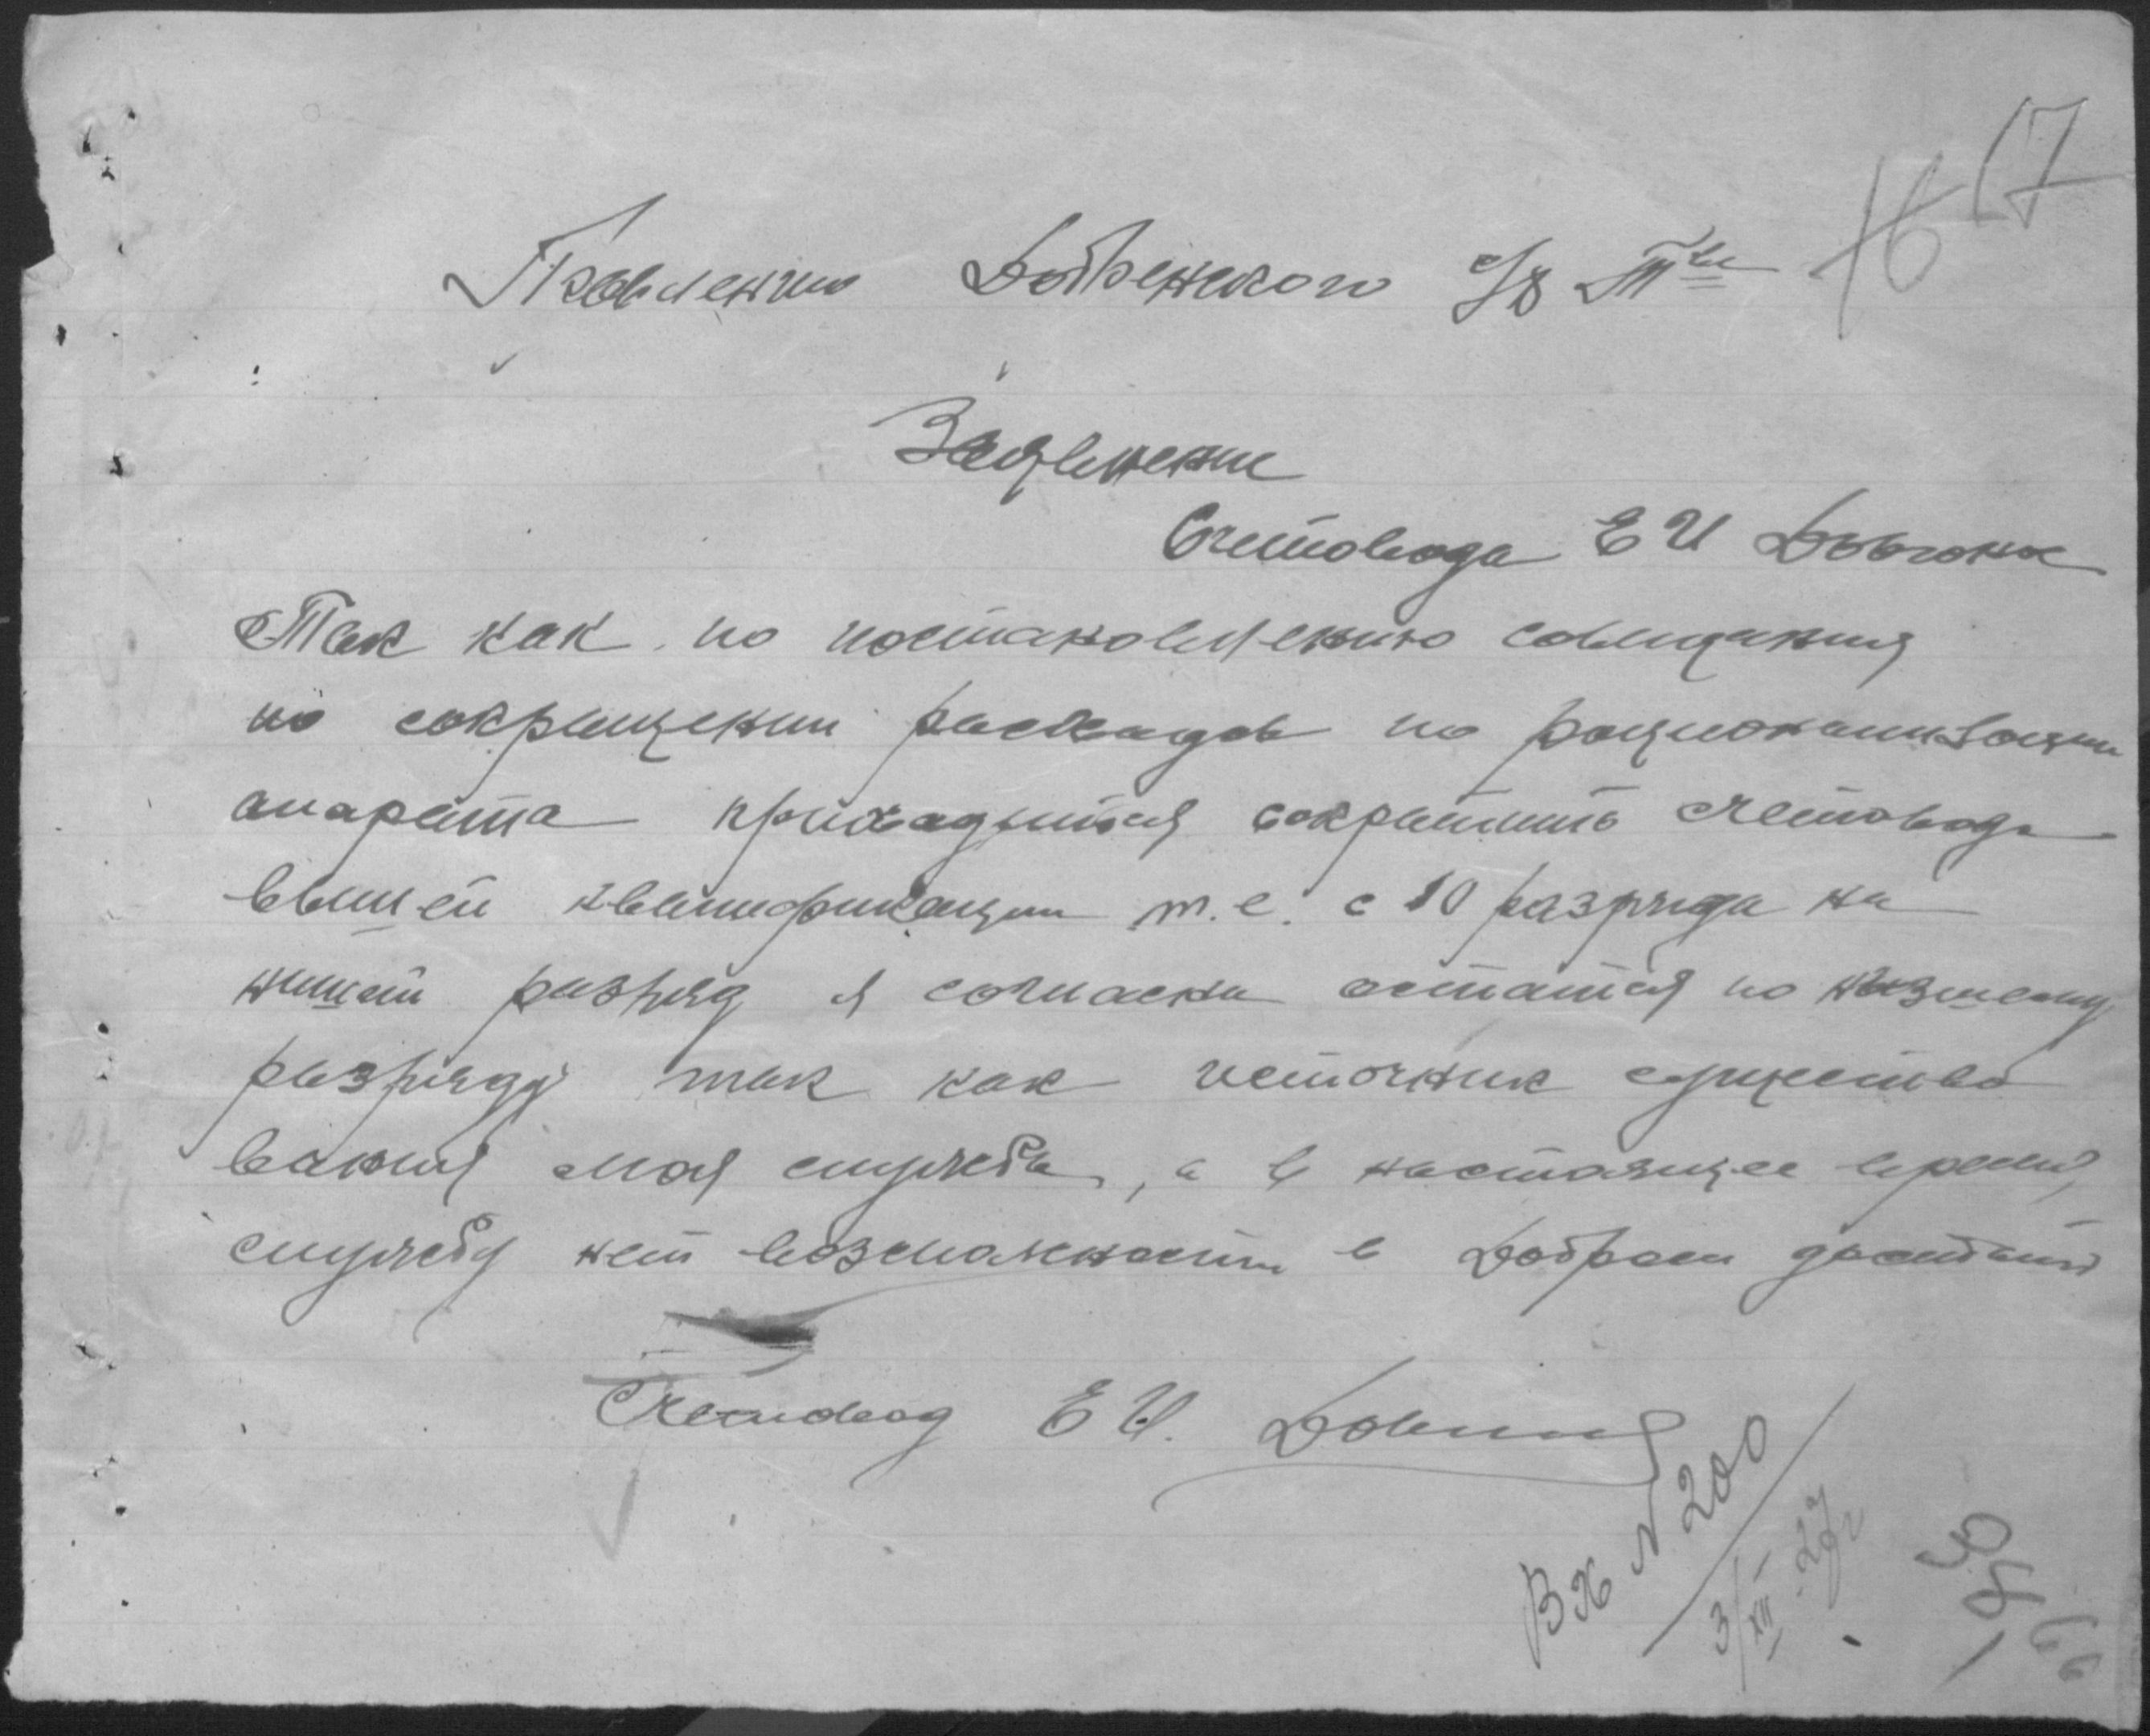 16 17
Правлению Добренского с/х Т-ва
Заявление
Счетовода Е И
Так как по постановлению совещания
по сокращении расходов по рационализации
апарата приходится сократить счетовода
высшей квалификации т.е. с 10 разряда на
низший разряд я согласна остатся по низшему
разряду так как источник существо
вания моя служба, а в настоящее время
службу нет возможности в Добром достать
Счетовод Е И.
Вх N 200
3/XII 27г